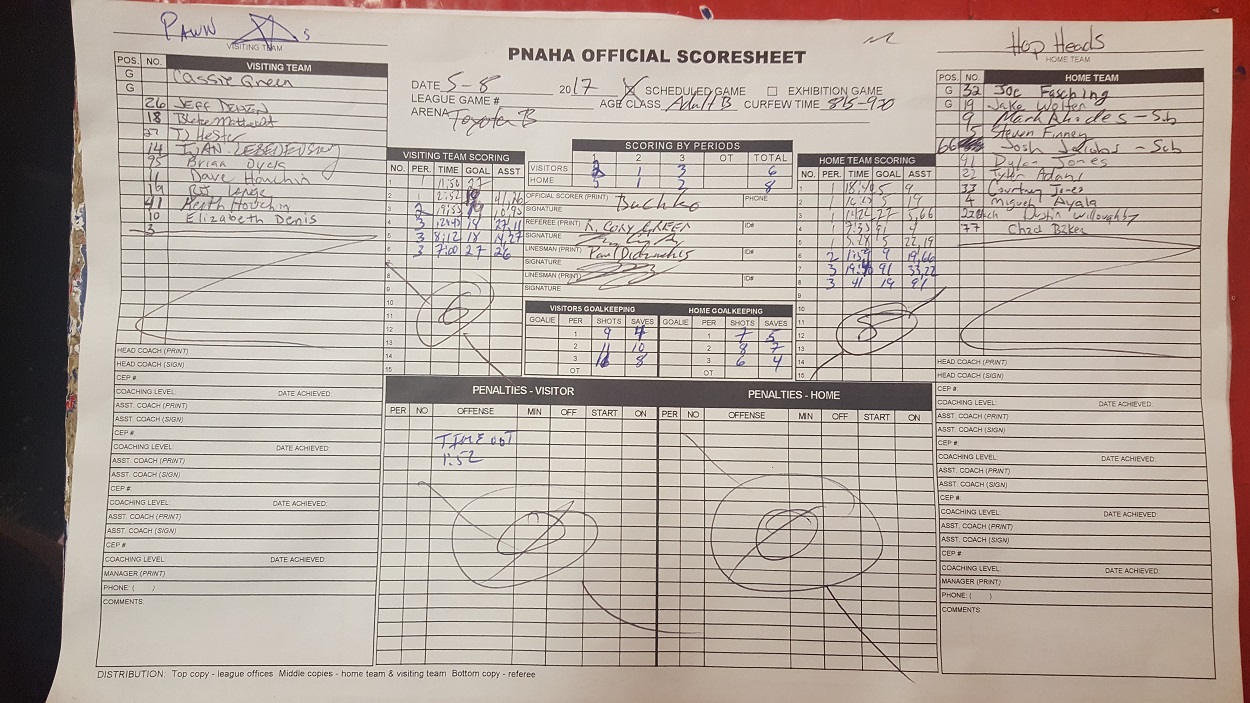 PAWN
s
VISITING TEAM
Hop Heads
HOME TEAM
PNAHA OFFICIAL SCORESHEET
DATE 5-8 2017 X SCHEDULED GAME □ EXHIBITION GAME
LEAGUE GAME # AGE CLASS Adult B CURFEW TIME
ARENA Toyota B
POS. NO. VISITING TEAM
G Cassie Green
G
26 JEFF
18
27 D Hester
14 IVAN
95 Brian Dyck
11 Dave Houchin
19 Lange
41 Houchin
10 Elizabeth Denis
3
HEAD COACH (PRINT)
HEAD COACH (SIGN)
CEP #
COACHING LEVEL: DATE ACHIEVED:
ASST. COACH (PRINT)
ASST. COACH (SIGN)
CEP #
COACHING LEVEL: DATE ACHIEVED:
ASST. COACH (PRINT)
ASST. COACH (SIGN)
CEP #
COACHING LEVEL: DATE ACHIEVED:
ASST. COACH (PRINT)
ASST. COACH (SIGN)
CEP #
COACHING LEVEL: DATE ACHIEVED:
MANAGER (PRINT)
PHONE: ( )
COMMENTS:
VISITING TEAM SCORING
NO. PER. TIME GOAL ASST
1 1 11:50 27
2 1 2:52 19 41,26
3 2 19:55 19 10,95
4 3 19 27,11
5 3 8:12 18 14,27
6 3 7:00 27 26
7
8
9
10
11
12
13
14
15
6
SCORING BY PERIODS
1 2 3 OT TOTAL
VISITORS 2 1 3 6
HOME 5 1 2 8
OFFICIAL SCORER (PRINT) Buchko PHONE
SIGNATURE
REFEREE (PRINT) R. CORY GREEN ID#
SIGNATURE
LINESMAN (PRINT) Paul ID#
SIGNATURE
LINESMAN (PRINT) ID#
SIGNATURE
VISITORS GOALKEEPING HOME GOALKEEPING
GOALIE PER SHOTS SAVES GOALIE PER SHOTS SAVES
1 9 4 1 7 5
2 11 10 2 8 7
3 8 3 6 4
OT OT
HOME TEAM SCORING
NO. PER. TIME GOAL ASST
1 1 18:40 5 9
2 1 5 19
3 1 14:26 27 5,66
4 1 7:33 91 4
5 1 5:28 5 22,19
6 2 1:59 9 19,66
7 3 91 33,22
8 3 41 19 91
9
10
11
12
13
14
15
8
PENALTIES - VISITOR
PER NO OFFENSE MIN OFF START ON
TIME OUT
1:52
0
PENALTIES - HOME
PER NO OFFENSE MIN OFF START ON
0
POS. NO. HOME TEAM
G 32 Joe Fasching
G 19 Jake Wolfer
9 Mark Rhodes - Sub
5 Steven Finney
66 Josh - Sub
91 Dylan Jones
22 Tyler Adams
33 Courtney Jones
4 Miguel Ayala
Dustin Willoughby
77 Chad Baker
HEAD COACH (PRINT)
HEAD COACH (SIGN)
CEP #
COACHING LEVEL: DATE ACHIEVED:
ASST. COACH (PRINT)
ASST. COACH (SIGN)
CEP #
COACHING LEVEL: DATE ACHIEVED:
ASST. COACH (PRINT)
ASST. COACH (SIGN)
CEP #
COACHING LEVEL: DATE ACHIEVED:
ASST. COACH (PRINT)
ASST. COACH (SIGN)
CEP #
COACHING LEVEL: DATE ACHIEVED:
MANAGER (PRINT)
PHONE: ( )
COMMENTS:
DISTRIBUTION: Top copy - league offices Middle copies - home team & visiting team Bottom copy - referee